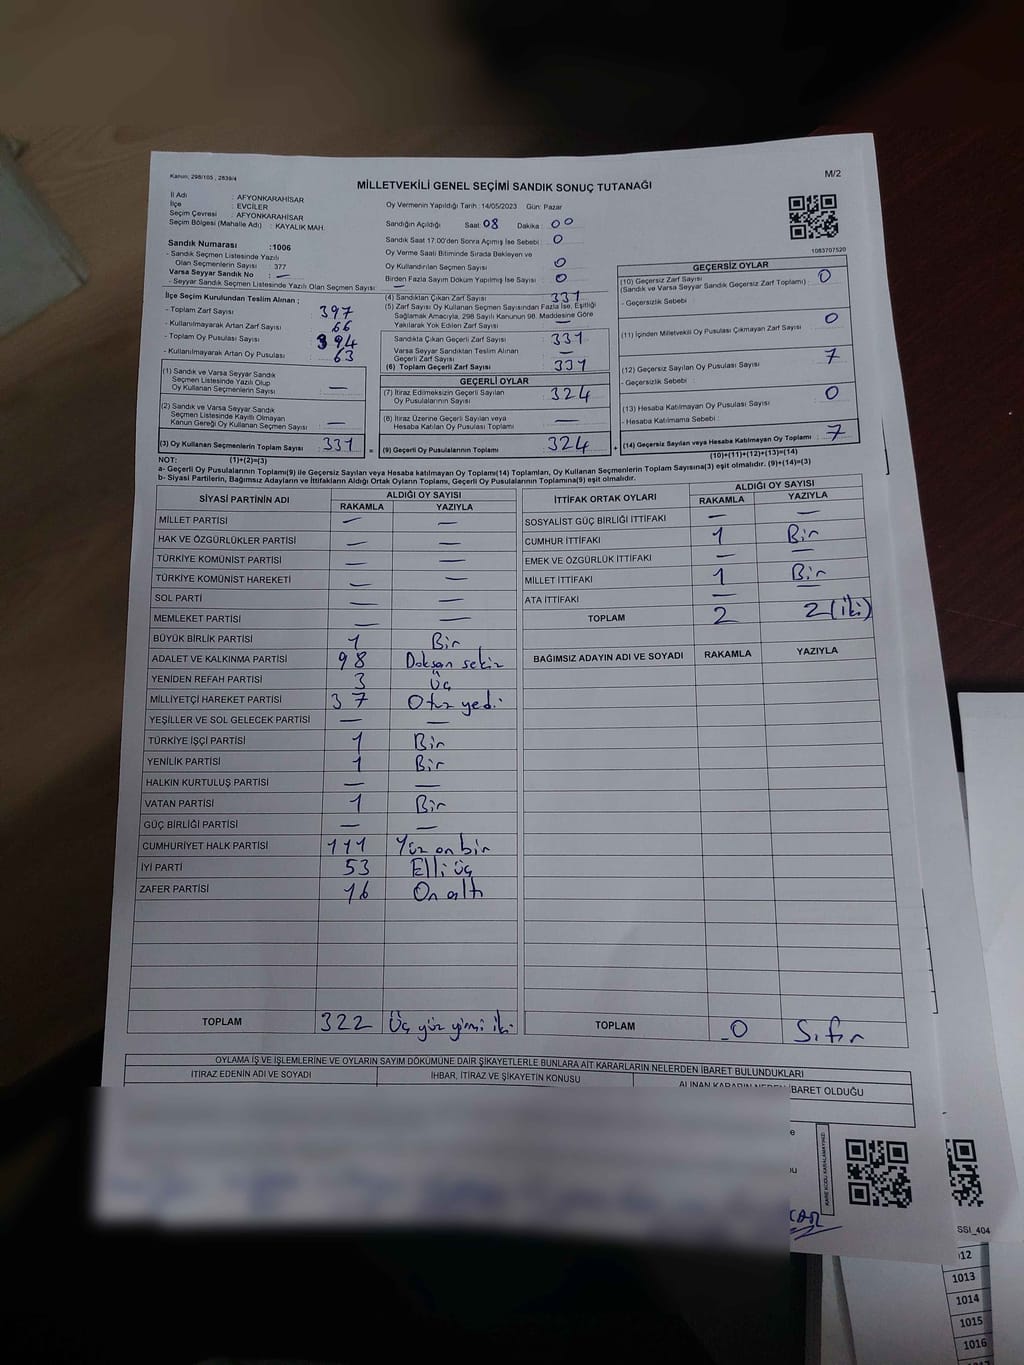 Kanun; 298/105 , 2839/4
M/2
MİLLETVEKİLİ GENEL SEÇİMİ SANDIK SONUÇ TUTANAĞI
İl Adı : AFYONKARAHİSAR
İlçe : EVCİLER
Seçim Çevresi : AFYONKARAHİSAR
Seçim Bölgesi (Mahalle Adı) : KAYALIK MAH.
Sandık Numarası :1006
- Sandık Seçmen Listesinde Yazılı
Olan Seçmenlerin Sayısı : 377
Varsa Seyyar Sandık No : —
- Seyyar Sandık Seçmen Listesinde Yazılı Olan Seçmen Sayısı: —
Oy Vermenin Yapıldığı Tarih : 14/05/2023 Gün: Pazar
Sandığın Açıldığı Saat: 08 Dakika : 00
Sandık Saat 17.00'den Sonra Açımış İse Sebebi : 0
Oy Verme Saati Bitiminde Sırada Bekleyen ve
Oy Kullandırılan Seçmen Sayısı : 0
Birden Fazla Sayım Döküm Yapılmış İse Sayısı : 0
1083707520
İlçe Seçim Kurulundan Teslim Alınan ;
- Toplam Zarf Sayısı : 397
- Kullanılmayarak Artan Zarf Sayısı : 66
- Toplam Oy Pusulası Sayısı : 394
- Kullanılmayarak Artan Oy Pusulası : 63
(1) Sandık ve Varsa Seyyar Sandık
Seçmen Listesinde Yazılı Olup
Oy Kullanan Seçmenlerin Sayısı : —
(2) Sandık ve Varsa Seyyar Sandık
Seçmen Listesinde Kayıtlı Olmayan
Kanun Gereği Oy Kullanan Seçmen Sayısı : —
(3) Oy Kullanan Seçmenlerin Toplam Sayısı : 331
(1)+(2)=(3)
(4) Sandıktan Çıkan Zarf Sayısı : 331
(5) Zarf Sayısı Oy Kullanan Seçmen Sayısından Fazla İse, Eşitliği
Sağlamak Amacıyla, 298 Sayılı Kanunun 98. Maddesine Göre
Yakılarak Yok Edilen Zarf Sayısı : —
Sandıkta Çıkan Geçerli Zarf Sayısı : 331
Varsa Seyyar Sandıktan Teslim Alınan
Geçerli Zarf Sayısı : —
(6) Toplam Geçerli Zarf Sayısı : 331
GEÇERLİ OYLAR
(7) İtiraz Edilmeksizin Geçerli Sayılan
Oy Pusulalarının Sayısı : 324
(8) İtiraz Üzerine Geçerli Sayılan veya
Hesaba Katılan Oy Pusulaları Toplamı : —
= (9) Geçerli Oy Pusulalarının Toplamı : 324
GEÇERSİZ OYLAR
(10) Geçersiz Zarf Sayısı
(Sandık ve Varsa Seyyar Sandık Geçersiz Zarf Toplamı) : 0
- Geçersizlik Sebebi :
(11) İçinden Milletvekili Oy Pusulası Çıkmayan Zarf Sayısı : 0
(12) Geçersiz Sayılan Oy Pusulası Sayısı : 7
- Geçersizlik Sebebi :
(13) Hesaba Katılmayan Oy Pusulası Sayısı : 0
- Hesaba Katılmama Sebebi :
+ (14) Geçersiz Sayılan veya Hesaba Katılmayan Oy Toplamı : 7
(10)+(11)+(12)+(13)=(14)
NOT:
a- Geçerli Oy Pusulalarının Toplamı(9) ile Geçersiz Sayılan veya Hesaba katılmayan Oy Toplamı(14) Toplamları, Oy Kullanan Seçmenlerin Toplam Sayısına(3) eşit olmalıdır. (9)+(14)=(3)
b- Siyasi Partilerin, Bağımsız Adayların ve İttifakların Aldığı Oyların Toplamı, Geçerli Oy Pusulalarının Toplamına(9) eşit olmalıdır.
SİYASİ PARTİNİN ADI ALDIĞI OY SAYISI
RAKAMLA YAZIYLA
MİLLET PARTİSİ — —
HAK VE ÖZGÜRLÜKLER PARTİSİ — —
TÜRKİYE KOMÜNİST PARTİSİ — —
TÜRKİYE KOMÜNİST HAREKETİ — —
SOL PARTİ — —
MEMLEKET PARTİSİ — —
BÜYÜK BİRLİK PARTİSİ 1 Bir
ADALET VE KALKINMA PARTİSİ 98 Doksan sekiz
YENİDEN REFAH PARTİSİ 3 Üç
MİLLİYETÇİ HAREKET PARTİSİ 37 Otuz yedi
YEŞİLLER VE SOL GELECEK PARTİSİ — —
TÜRKİYE İŞÇİ PARTİSİ 1 Bir
YENİLİK PARTİSİ 1 Bir
HALKIN KURTULUŞ PARTİSİ — —
VATAN PARTİSİ 1 Bir
GÜÇ BİRLİĞİ PARTİSİ — —
CUMHURİYET HALK PARTİSİ 111 Yüz on bir
İYİ PARTİ 53 Elli üç
ZAFER PARTİSİ 16 On altı
TOPLAM 322 Üç yüz yirmi iki
İTTİFAK ORTAK OYLARI ALDIĞI OY SAYISI
RAKAMLA YAZIYLA
SOSYALİST GÜÇ BİRLİĞİ İTTİFAKI — —
CUMHUR İTTİFAKI 1 Bir
EMEK VE ÖZGÜRLÜK İTTİFAKI — —
MİLLET İTTİFAKI 1 Bir
ATA İTTİFAKI — —
TOPLAM 2 2 (iki)
BAĞIMSIZ ADAYIN ADI VE SOYADI RAKAMLA YAZIYLA
TOPLAM 0 Sıfır
OYLAMA İŞ VE İŞLEMLERİNE VE OYLARIN SAYIM DÖKÜMÜNE DAİR ŞİKAYETLERLE BUNLARA AİT KARARLARIN NELERDEN İBARET BULUNDUKLARI
İTİRAZ EDENİN ADI VE SOYADI İHBAR, İTİRAZ VE ŞİKAYETİN KONUSU ALINAN KARARIN NEDEN İBARET OLDUĞU
KARE KODU KARALAMAYINIZ!
SSI_404
1013
1014
1015
1016